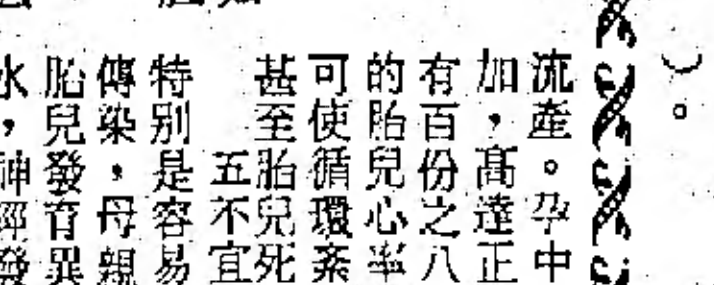 ）。
流產。孕中
加，高達正
有百份之八
的胎兒心率
可使循環紊
甚至胎兒死
五不宜
特別是容易
傳染，母親
胎兒發育異
水，神經發